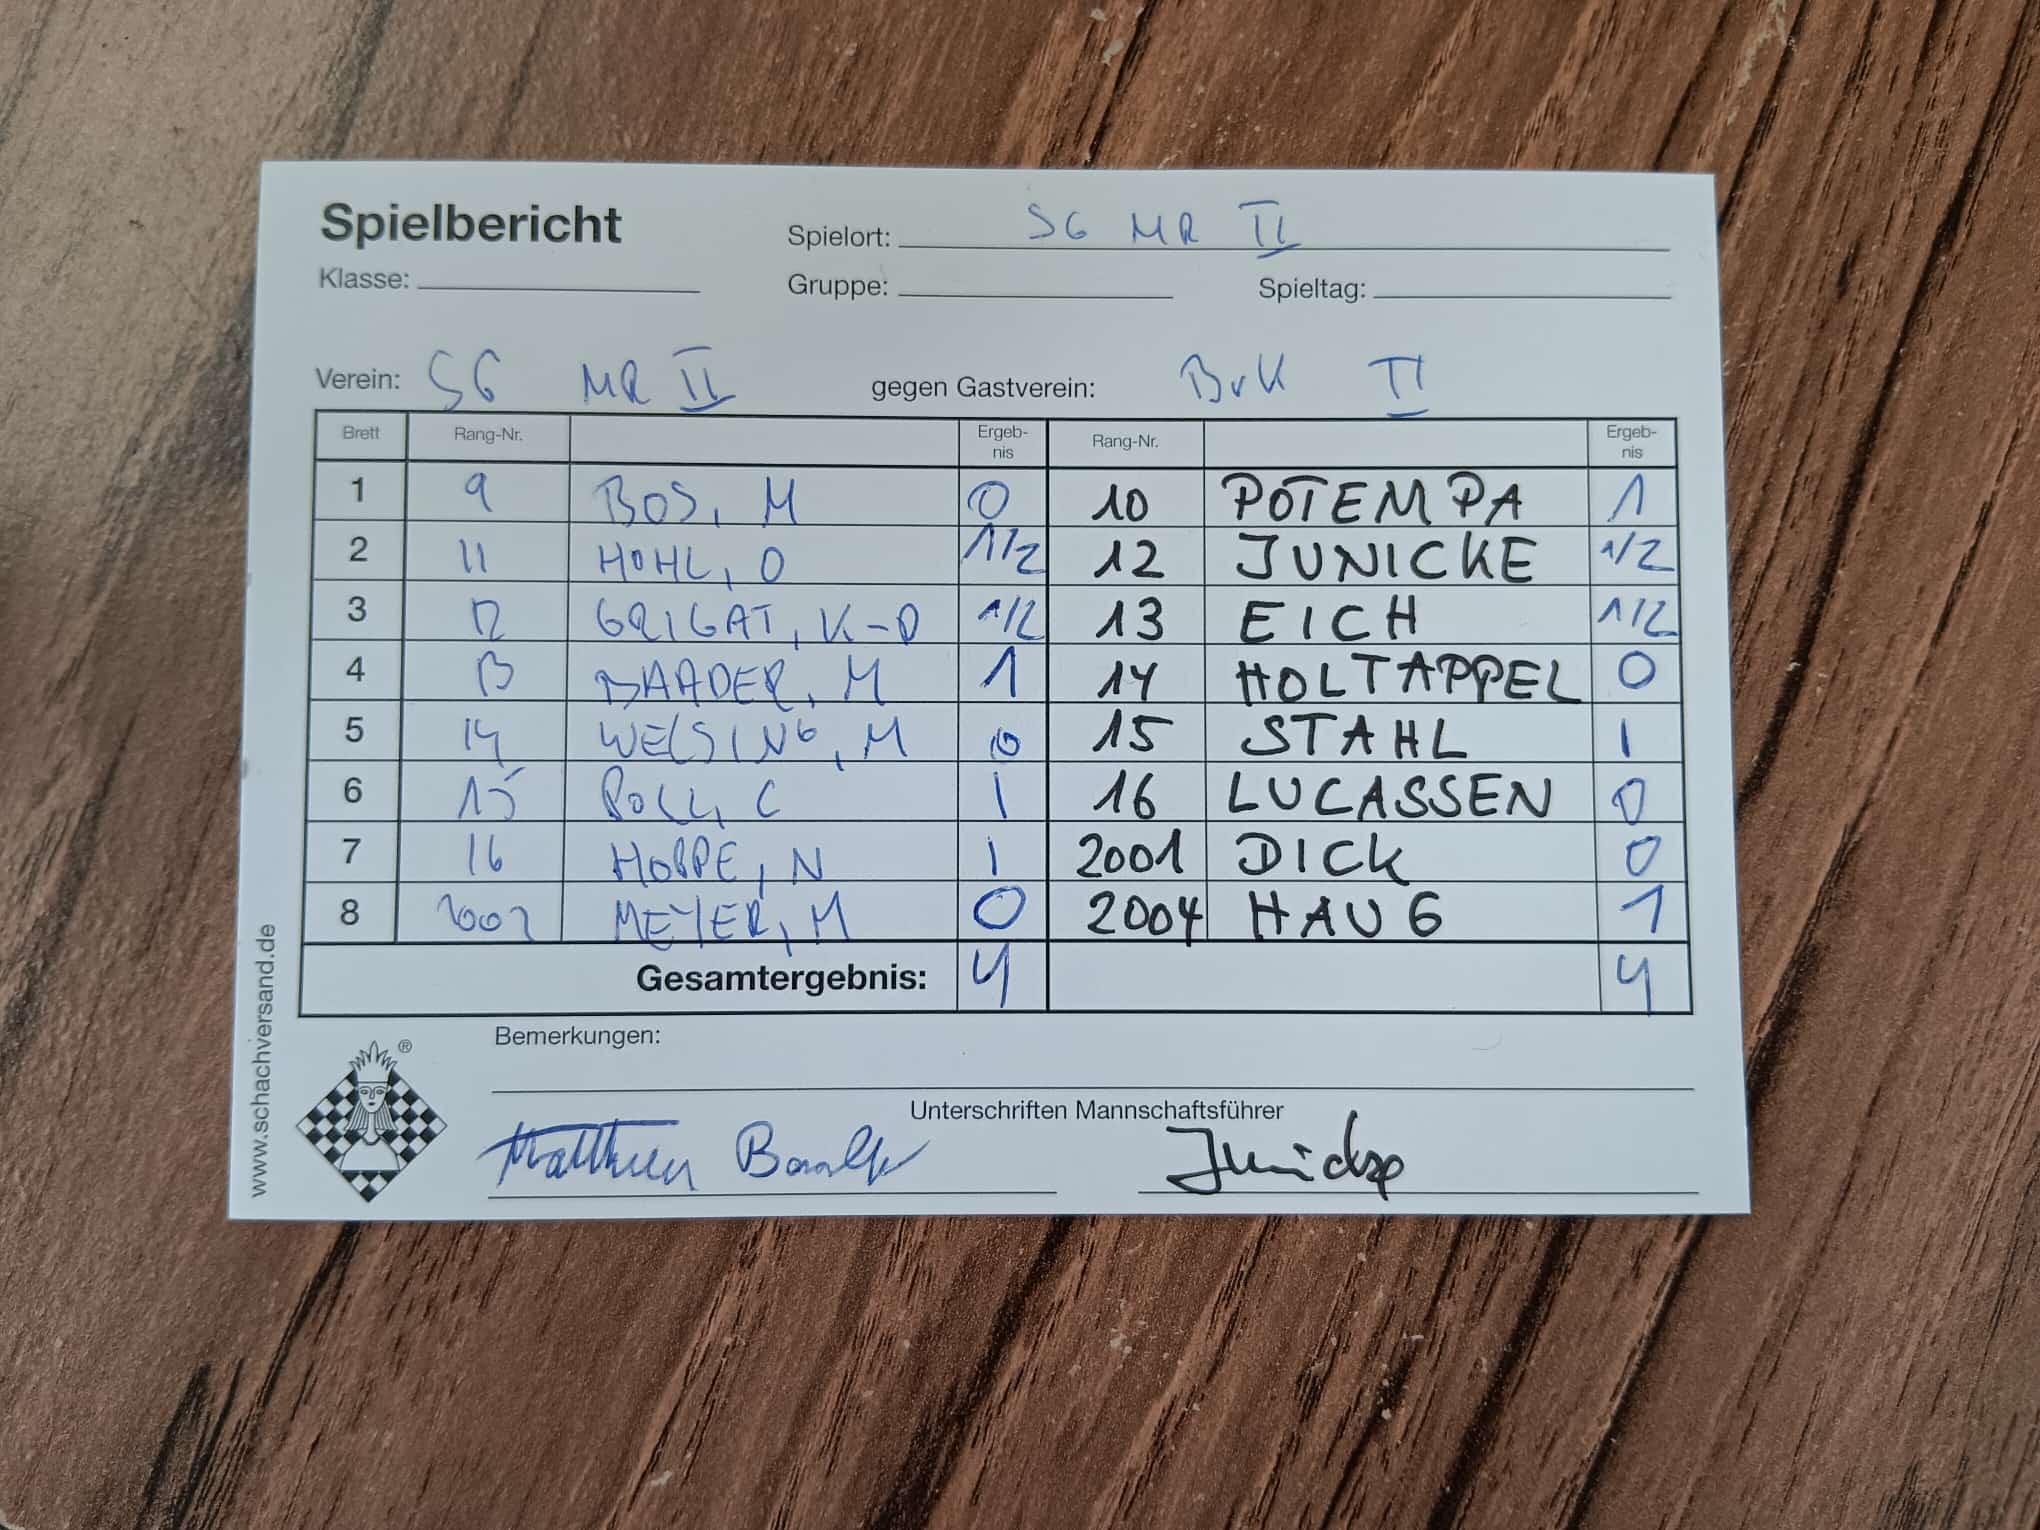 Spielbericht Spielort: SG MR II
Klasse: Gruppe: Spieltag:
Verein: SG MR II gegen Gastverein: BvK II
Brett Rang-Nr. Ergeb-nis Rang-Nr. Ergeb-nis
1 9 BOS, M 0 10 POTEMPA 1
2 11 HOHL, O 1/2 12 JUNICKE 1/2
3 12 GRIGAT, K-D 1/2 13 EICH 1/2
4 13 BAADER, M 1 14 HOLTAPPEL 0
5 14 WELSING, M 0 15 STAHL 1
6 15 POLL, C 1 16 LUCASSEN 0
7 16 HOPPE, N 1 2001 DICK 0
8 2002 MEYER, M 0 2004 HAUG 1
Gesamtergebnis: 4 4
Bemerkungen:
Unterschriften Mannschaftsführer
Junicke
www.schachversand.de
®